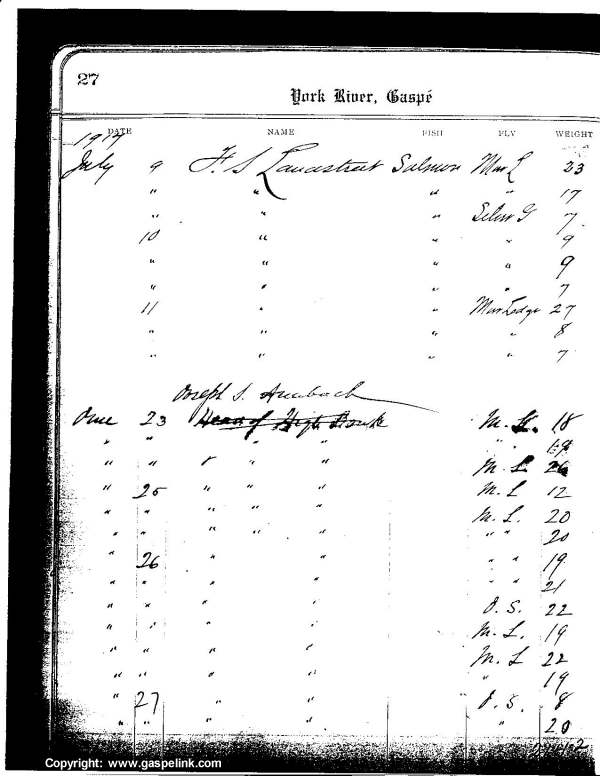 27
York River, Gaspé
DATE NAME FISH FLY WEIGHT
1917
July 9 F. S. Salmon Mar L 23
" " " " 17
" " " Silver G 7
10 " " " 9
" " " " 9
" " " " 7
11 " " Mar Lodge 27
" " " " 8
" " " " 7
Joseph S.
23 Head of High Bank M. L. 18
" " " " " " "
" " " " " M. L. 26
" 25 " " " M. L 12
" " " " " M. L. 20
" " " " " " " 20
" 26 " " " " 19
" " " " " " 21
" " " " J. S. 22
" " " " M. L. 19
" " " " M. L 22
" " " " " 19
" 27 " " J. S. 8
" " " " " 20
Copyright: www.gaspelink.com